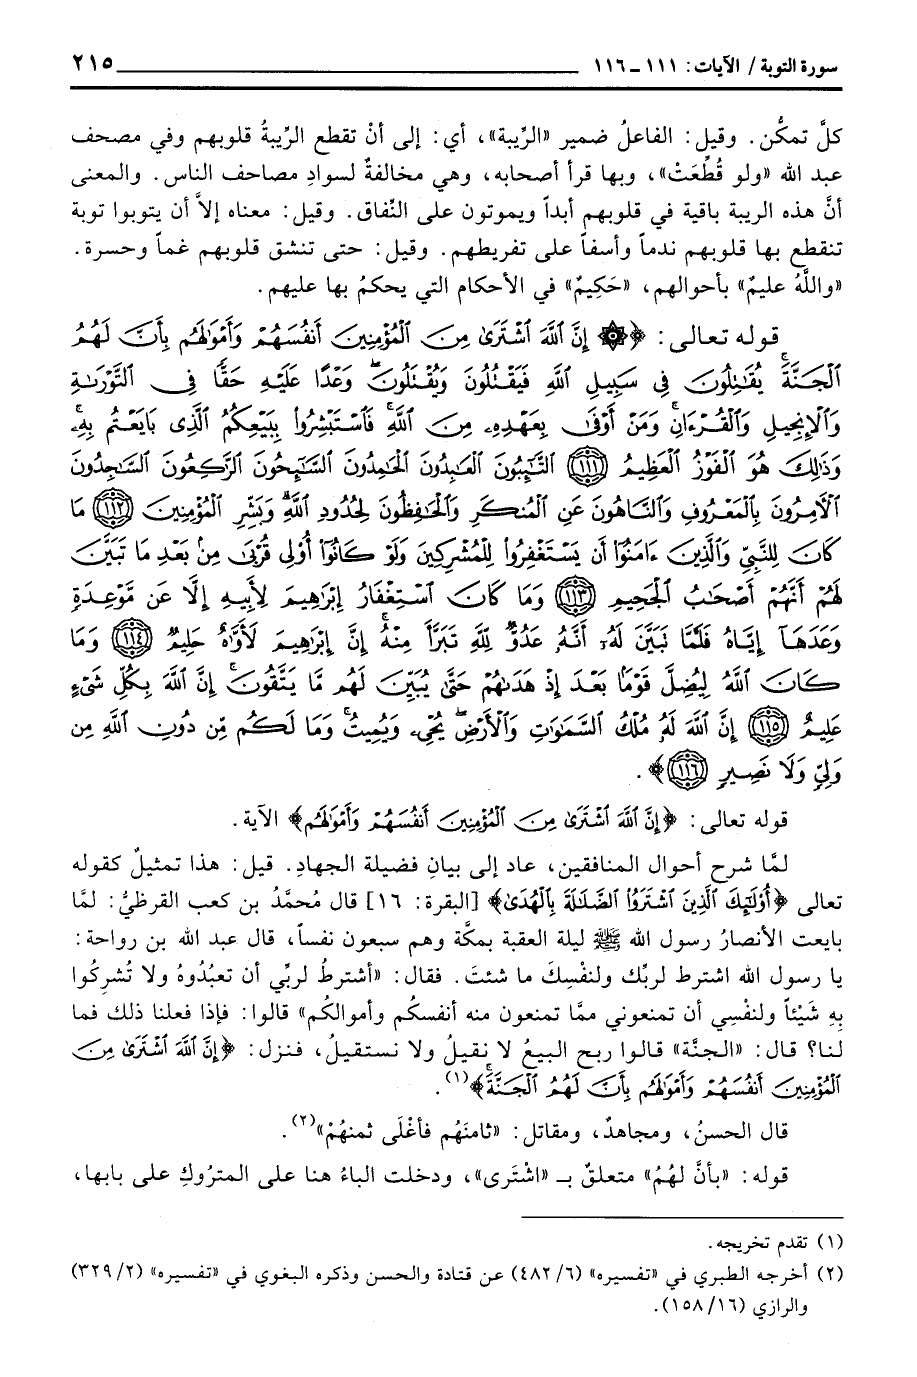 سورة التوبة / الآيات: ١١١ - ١١٦ ٢١٥
كلَّ تمكُّن. وقيل: الفاعلُ ضمير «الرِّيبة»، أي: إلى أنْ تقطع الرِّيبةُ قلوبهم وفي مصحف
عبد الله «ولو قُطِّعَتْ»، وبها قرأ أصحابه، وهي مخالفةٌ لسوادِ مصاحف الناس. والمعنى
أنَّ هذه الريبة باقية في قلوبهم أبداً ويموتون على النِّفاق. وقيل: معناه إلاَّ أن يتوبوا توبة
تنقطع بها قلوبهم ندماً وأسفاً على تفريطهم. وقيل: حتى تنشق قلوبهم غماً وحسرة.
«واللَّهُ عليمٌ» بأحوالهم، «حَكِيمٌ» في الأحكام التي يحكمُ بها عليهم.
قوله تعالى: ﴿۞ إِنَّ ٱللَّهَ ٱشْتَرَىٰ مِنَ ٱلْمُؤْمِنِينَ أَنفُسَهُمْ وَأَمْوَٰلَهُم بِأَنَّ لَهُمُ
ٱلْجَنَّةَۚ يُقَٰتِلُونَ فِى سَبِيلِ ٱللَّهِ فَيَقْتُلُونَ وَيُقْتَلُونَۖ وَعْدًا عَلَيْهِ حَقًّا فِى ٱلتَّوْرَىٰةِ
وَٱلْإِنجِيلِ وَٱلْقُرْءَانِۚ وَمَنْ أَوْفَىٰ بِعَهْدِهِۦ مِنَ ٱللَّهِۚ فَٱسْتَبْشِرُوا۟ بِبَيْعِكُمُ ٱلَّذِى بَايَعْتُم بِهِۦۚ
وَذَٰلِكَ هُوَ ٱلْفَوْزُ ٱلْعَظِيمُ ﴿١١١﴾ ٱلتَّٰٓئِبُونَ ٱلْعَٰبِدُونَ ٱلْحَٰمِدُونَ ٱلسَّٰٓئِحُونَ ٱلرَّٰكِعُونَ ٱلسَّٰجِدُونَ
ٱلْءَامِرُونَ بِٱلْمَعْرُوفِ وَٱلنَّاهُونَ عَنِ ٱلْمُنكَرِ وَٱلْحَٰفِظُونَ لِحُدُودِ ٱللَّهِۗ وَبَشِّرِ ٱلْمُؤْمِنِينَ ﴿١١٢﴾ مَا
كَانَ لِلنَّبِىِّ وَٱلَّذِينَ ءَامَنُوٓا۟ أَن يَسْتَغْفِرُوا۟ لِلْمُشْرِكِينَ وَلَوْ كَانُوٓا۟ أُو۟لِى قُرْبَىٰ مِنۢ بَعْدِ مَا تَبَيَّنَ
لَهُمْ أَنَّهُمْ أَصْحَٰبُ ٱلْجَحِيمِ ﴿١١٣﴾ وَمَا كَانَ ٱسْتِغْفَارُ إِبْرَٰهِيمَ لِأَبِيهِ إِلَّا عَن مَّوْعِدَةٍ
وَعَدَهَآ إِيَّاهُ فَلَمَّا تَبَيَّنَ لَهُۥٓ أَنَّهُۥ عَدُوٌّ لِّلَّهِ تَبَرَّأَ مِنْهُۚ إِنَّ إِبْرَٰهِيمَ لَأَوَّٰهٌ حَلِيمٌ ﴿١١٤﴾ وَمَا
كَانَ ٱللَّهُ لِيُضِلَّ قَوْمًۢا بَعْدَ إِذْ هَدَىٰهُمْ حَتَّىٰ يُبَيِّنَ لَهُم مَّا يَتَّقُونَۚ إِنَّ ٱللَّهَ بِكُلِّ شَىْءٍ
عَلِيمٌ ﴿١١٥﴾ إِنَّ ٱللَّهَ لَهُۥ مُلْكُ ٱلسَّمَٰوَٰتِ وَٱلْأَرْضِۖ يُحْىِۦ وَيُمِيتُۚ وَمَا لَكُم مِّن دُونِ ٱللَّهِ مِن
وَلِىٍّ وَلَا نَصِيرٍ ﴿١١٦﴾﴾.
قوله تعالى: ﴿إِنَّ ٱللَّهَ ٱشْتَرَىٰ مِنَ ٱلْمُؤْمِنِينَ أَنفُسَهُمْ وَأَمْوَٰلَهُم﴾ الآية.
لمَّا شرح أحوال المنافقين، عاد إلى بيانِ فضيلة الجهادِ. قيل: هذا تمثيلٌ كقوله
تعالى ﴿أُو۟لَٰٓئِكَ ٱلَّذِينَ ٱشْتَرَوُا۟ ٱلضَّلَٰلَةَ بِٱلْهُدَىٰ﴾ [البقرة: ١٦] قال مُحمَّدُ بن كعب القرظيُّ: لمَّا
بايعت الأنصارُ رسول الله ﷺ ليلة العقبة بمكَّة وهم سبعون نفساً، قال عبد الله بن رواحة:
يا رسول الله اشترط لربِّك ولنفْسِكَ ما شئتَ. فقال: «أشترطُ لربِّي أن تعبُدُوهُ ولا تُشرِكُوا
بِهِ شَيْئاً ولنفْسِي أن تمنعوني ممَّا تمنعون منه أنفسكُم وأموالكُم» قالوا: فإذا فعلنا ذلك فما
لنا؟ قال: «الجنَّة» قالوا ربح البيعُ لا نقيلُ ولا نستقيلُ، فنزل: ﴿إِنَّ ٱللَّهَ ٱشْتَرَىٰ مِنَ
ٱلْمُؤْمِنِينَ أَنفُسَهُمْ وَأَمْوَٰلَهُم بِأَنَّ لَهُمُ ٱلْجَنَّةَۚ﴾(١).
قال الحسنُ، ومجاهدٌ، ومقاتل: «ثامنَهُم فأغْلَى ثمنهُمْ»(٢).
قوله: «بأنَّ لهُمُ» متعلقٌ بـ «اشْتَرى»، ودخلت الباءُ هنا على المترُوكِ على بابها،
(١) تقدم تخريجه.
(٢) أخرجه الطبري في «تفسيره» (٦/ ٤٨٢) عن قتادة والحسن وذكره البغوي في «تفسيره» (٢/ ٣٢٩)
والرازي (١٦/ ١٥٨).